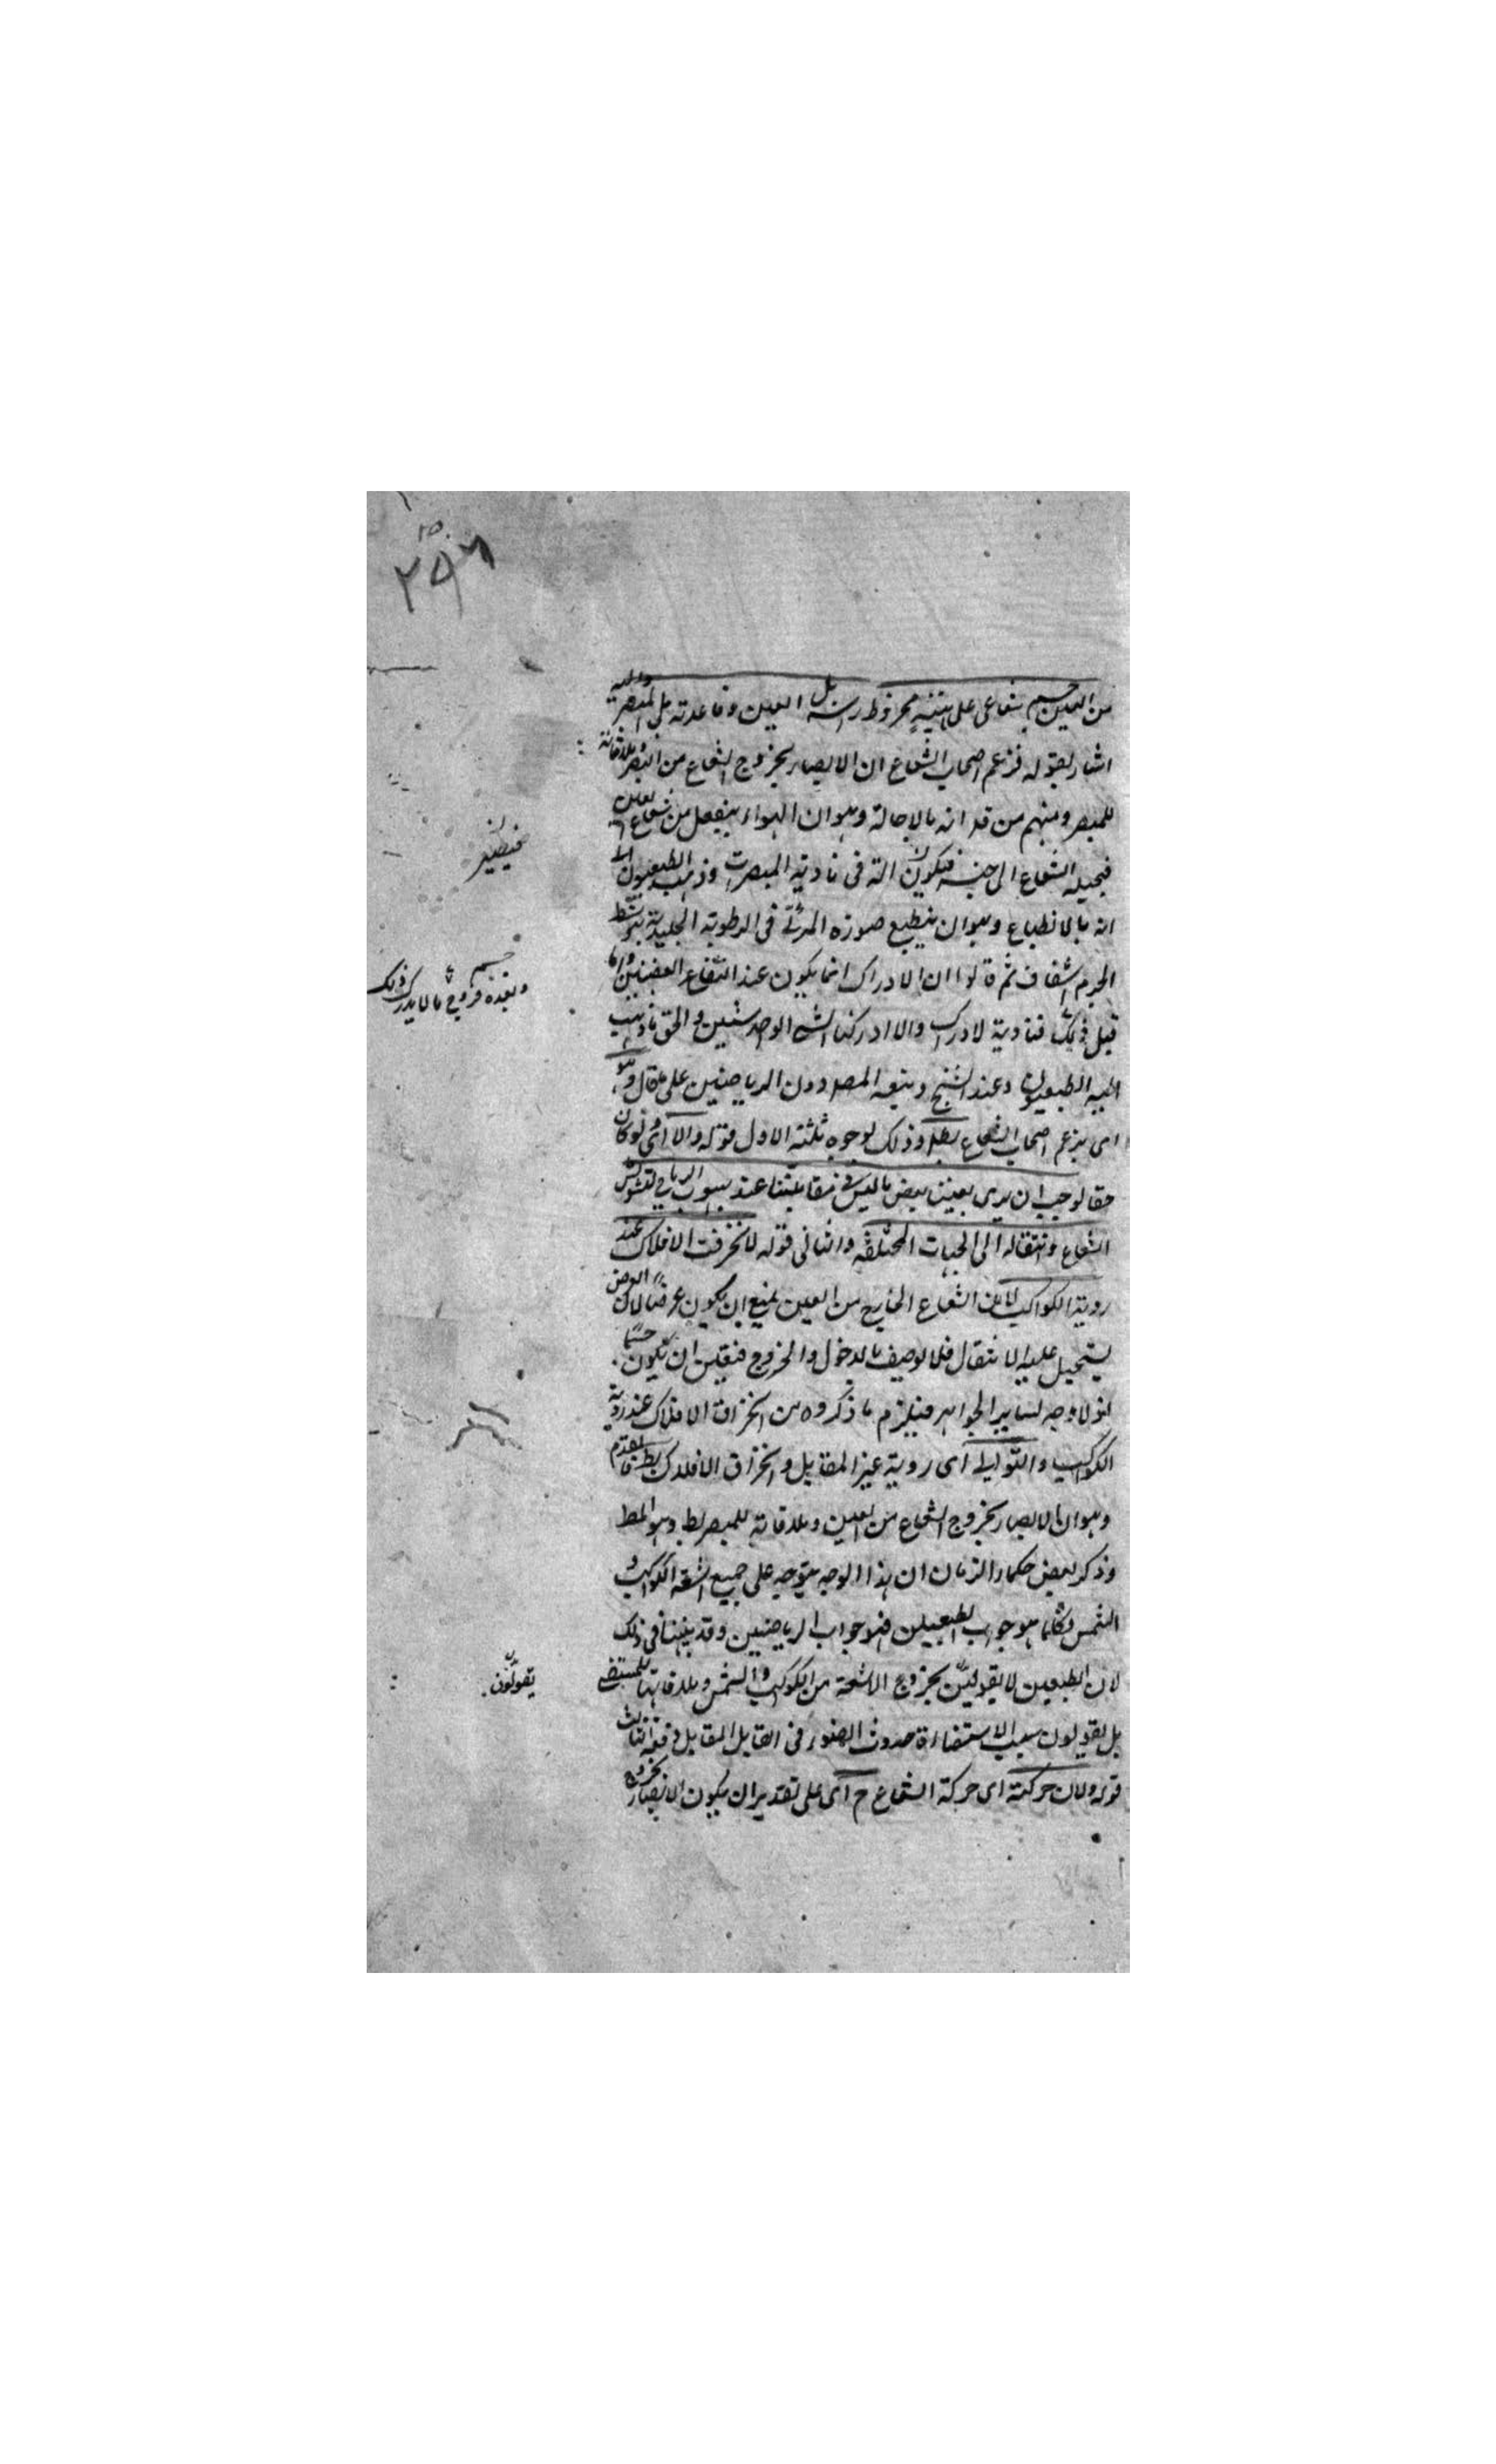 ٢٥٦
من العين جسم شعاعى على هيئة مخروط راسه يلى العين وقاعدته يلى المبصر واليه
اشار بقوله فزعم اصحاب الشعاع ان الابصار بخروج الشعاع من البصر وملاقاته
للمبصر ومنهم من قد انه بالاحالة وهو ان الهواء ينفعل من شعاع العين
فيحيله الشعاع الى جنسه فيكون آلة فى تادية المبصرات وذهب الطبيعيون الى
انه بالانطباع وهو ان ينطبع صورة المرئى فى الرطوبة الجليدية بتوسط
الجرم الشفاف ثم قالوا ان الادراك انما يكون عند التقاء العصبتين واما
قبل ذلك فتادية لادراك والا ادركنا الشئ الواحد شيئين والحق ما ذهب
اليه الطبيعيون وعند الشيخ وتبعه المص دون الرياضيين على ما قال وهو
اى زعم اصحاب الشعاع بط وذلك لوجوه ثلثة الاول قوله والا اى ولو كان
حقا لوجب ان يرى بعيننا بعض ما ليس فى مقابلتنا عند هبوب الرياح لتشوش
الشعاع وانتقاله الى الجهات المختلفة والثانى قوله لانخرقت الافلاك عند
روية الكواكب لان الشعاع الخارج من العين يمتنع ان يكون عرضا لان العرض
يستحيل عليه الانتقال فلا يوصف بالدخول والخروج فتعين ان يكون جسما
اذ لا وجه لساير الجواهر فيلزم ما ذكروه من انخراق الافلاك عند روية
الكواكب والتوالى اى روية غير المقابل وانخراق الافلاك بط فالمقدم
وهو ان الابصار بخروج الشعاع من العين وملاقاته للمبصر بط وهو المط
وذكر بعض حكماء الزمان ان هذا الوجه يتوجه على جميع اشعة الكواكب و
الشمس فكلما هو جواب الطبيعيين فهو جواب الرياضيين وقد بينا فى ذلك
لان الطبيعيين لا يقولون بخروج الاشعة من الكواكب والشمس وملاقاتها للمستضئ
بل يقولون سبب الاستضاءة حدوث الضوء فى القابل المقابل دفعة الثالث
قوله ولان حركته اى حركة الشعاع ح اى على تقدير ان يكون الابصار بخروج
يقولون